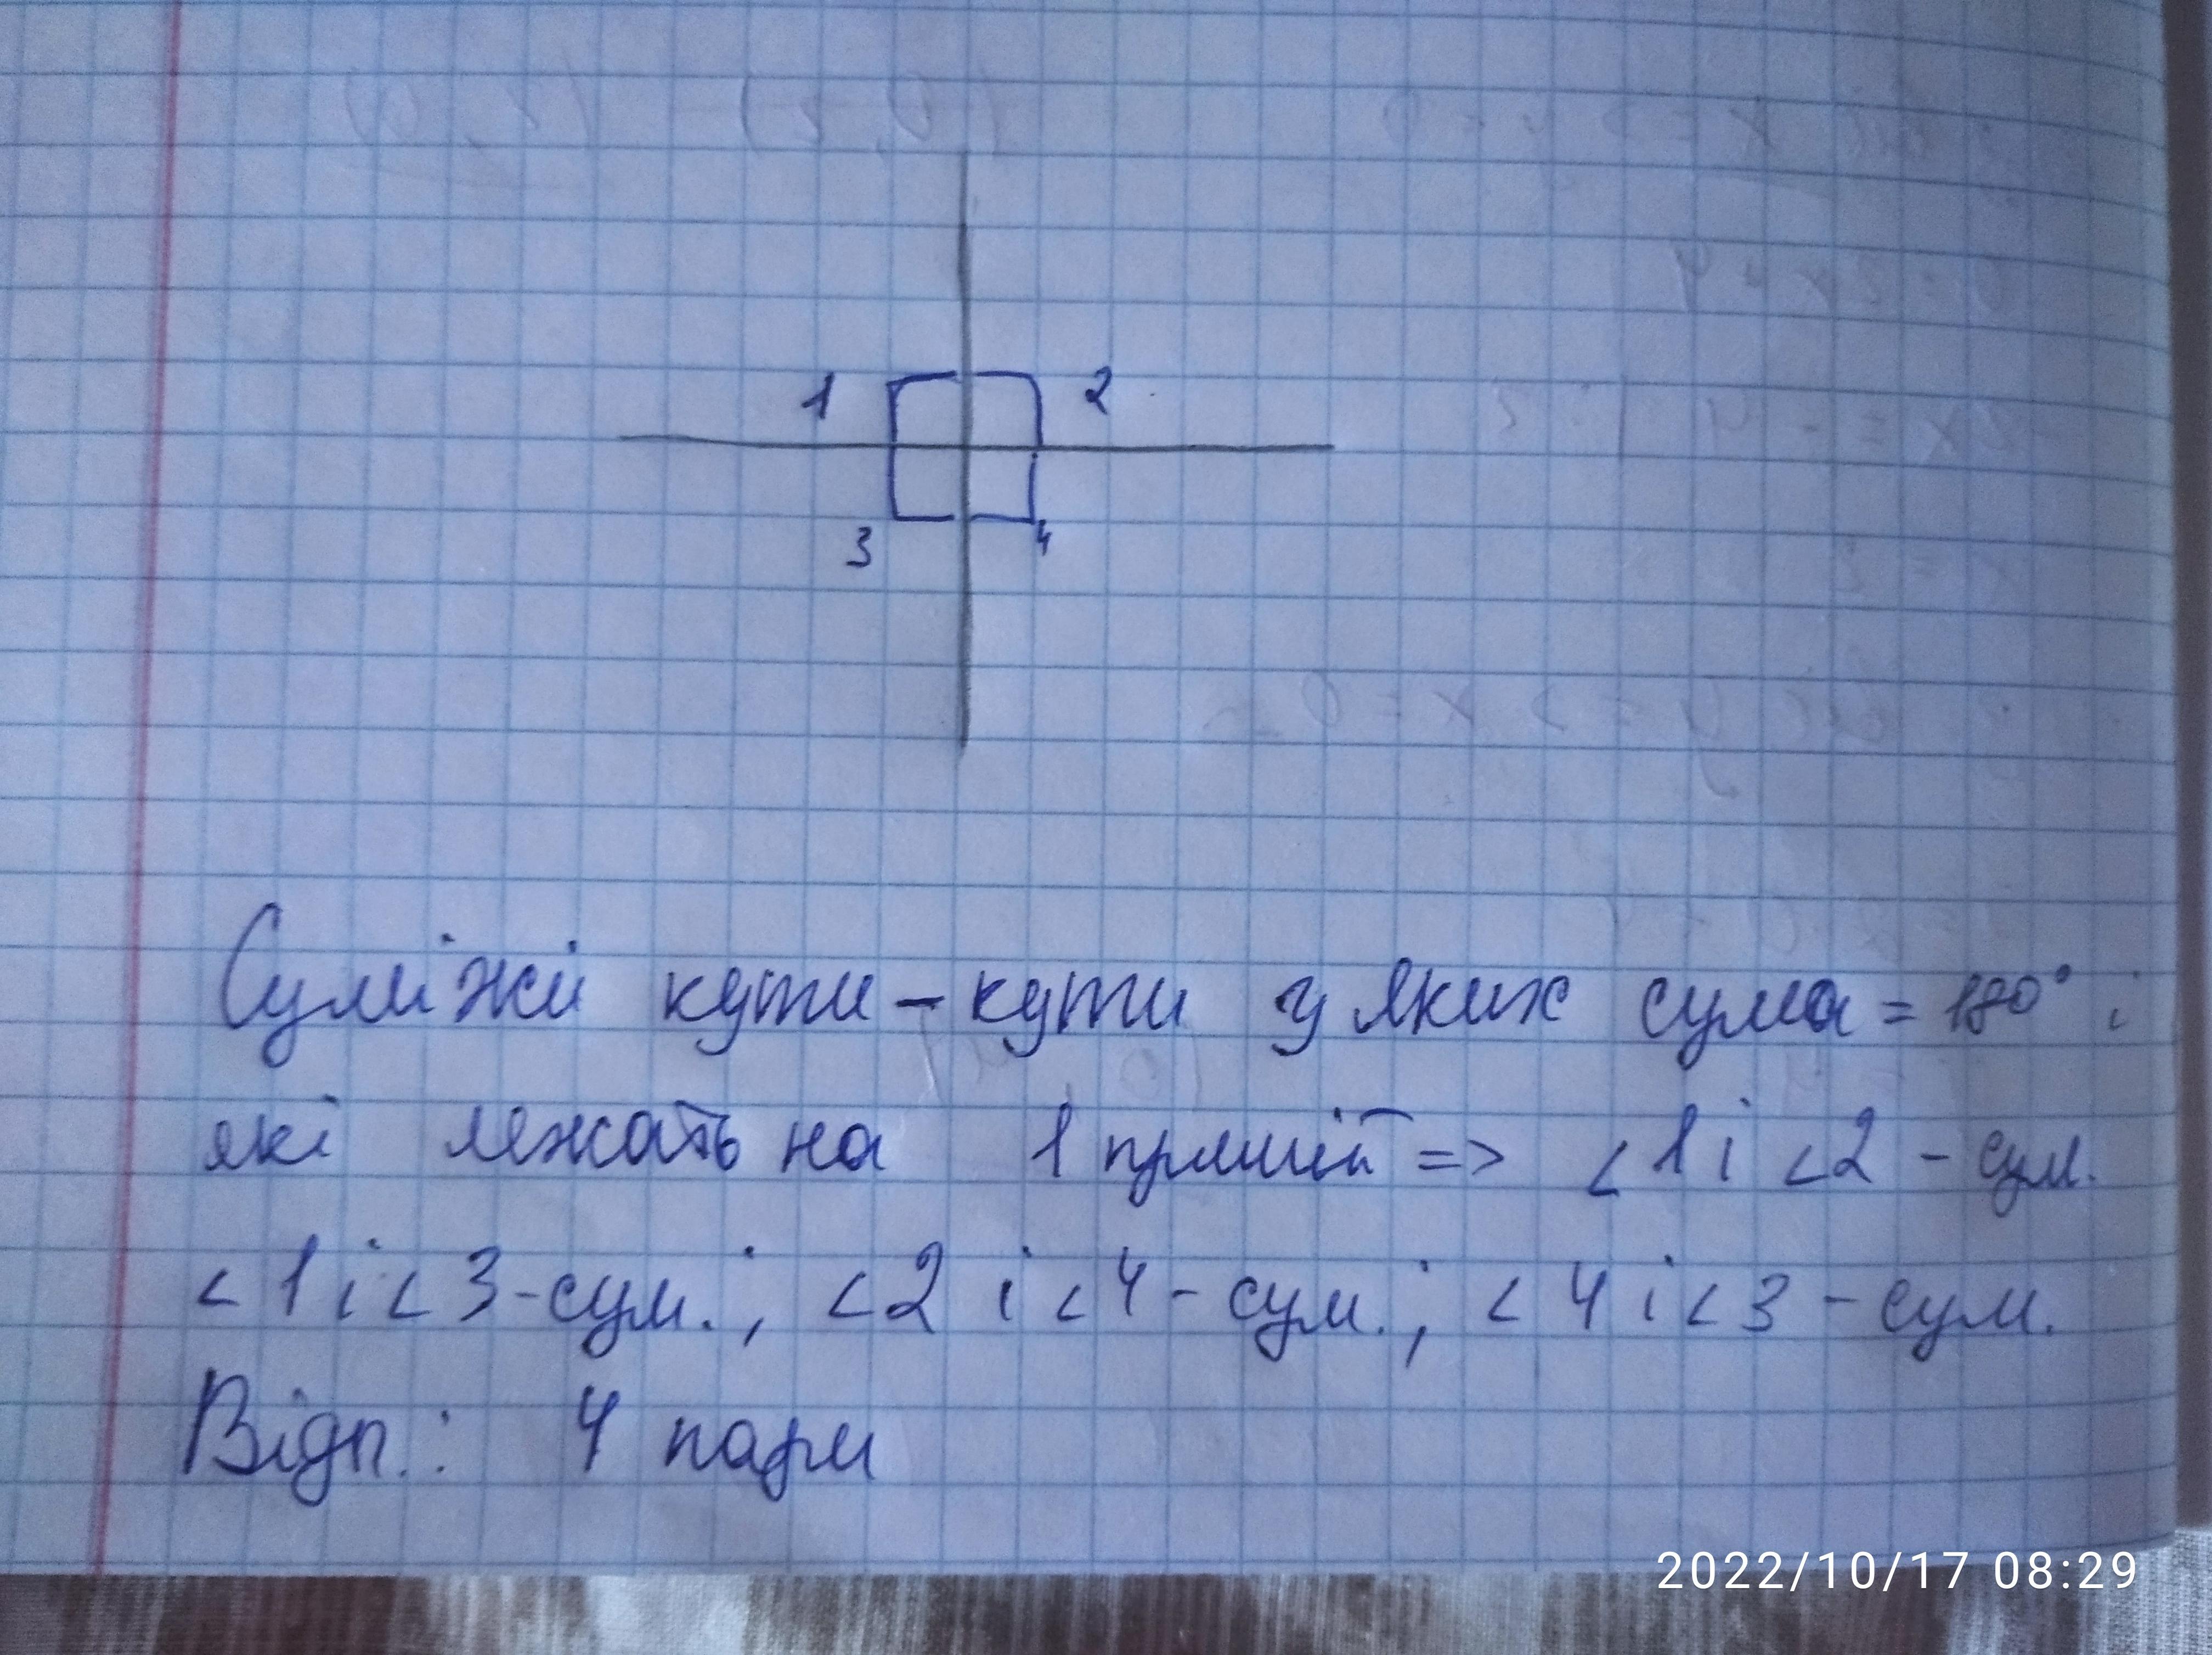 1 2
3 4
Суміжні кути – кути у яких сума = 180° і
які лежать на 1 прямій => <1 і <2 - сум.
<1 і <3 - сум.; <2 і <4 - сум.; <4 і <3 - сум.
Відп.: 4 пари
2022/10/17 08:29